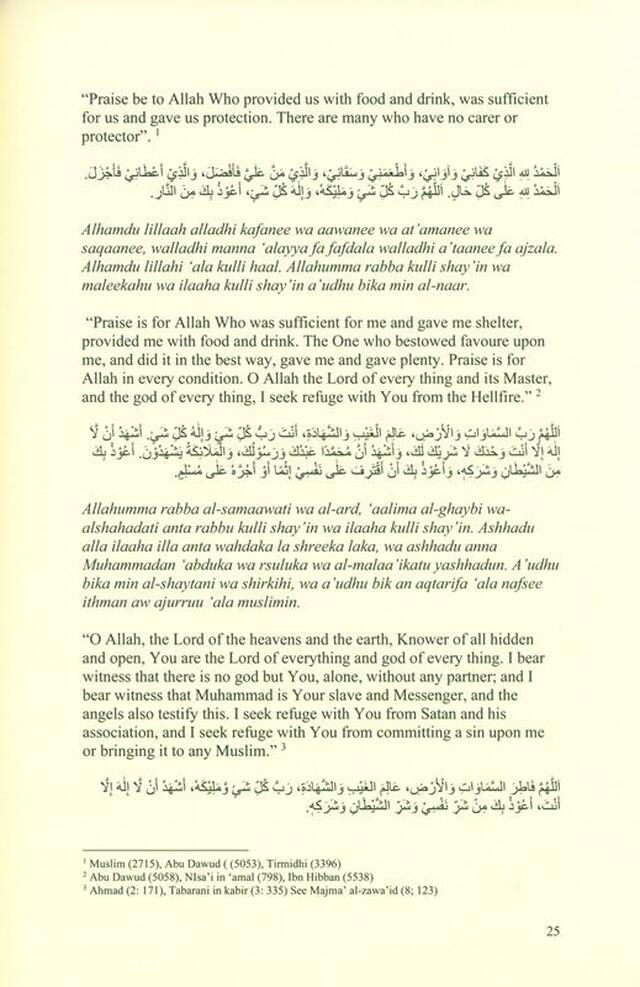 “Praise be to Allah Who provided us with food and drink, was sufficient
for us and gave us protection. There are many who have no carer or
protector”. 1
اَلْحَمْدُ لِلهِ الَّذِيْ كَفَانِيْ وَآوَانِيْ، وَأَطْعَمَنِيْ وَسَقَانِيْ، وَالَّذِيْ مَنَّ عَلَيَّ فَأَفْضَلَ، وَالَّذِيْ أَعْطَانِيْ فَأَجْزَلَ.
اَلْحَمْدُ لِلهِ عَلَى كُلِّ حَالٍ. اَللّٰهُمَّ رَبَّ كُلِّ شَيْءٍ وَمَلِيْكَهُ، وَإِلٰهَ كُلِّ شَيْءٍ، أَعُوْذُ بِكَ مِنَ النَّارِ.
Alhamdu lillaah alladhi kafanee wa aawanee wa at’amanee wa
saqaanee, walladhi manna ‘alayya fa fafdala walladhi a’taanee fa ajzala.
Alhamdu lillahi ‘ala kulli haal. Allahumma rabba kulli shay’in wa
maleekahu wa ilaaha kulli shay’in a’udhu bika min al-naar.
“Praise is for Allah Who was sufficient for me and gave me shelter,
provided me with food and drink. The One who bestowed favoure upon
me, and did it in the best way, gave me and gave plenty. Praise is for
Allah in every condition. O Allah the Lord of every thing and its Master,
and the god of every thing, I seek refuge with You from the Hellfire.” 2
اَللّٰهُمَّ رَبَّ السَّمَاوَاتِ وَالْأَرْضِ، عَالِمَ الْغَيْبِ وَالشَّهَادَةِ، أَنْتَ رَبُّ كُلِّ شَيْءٍ وَإِلٰهُ كُلِّ شَيْءٍ. أَشْهَدُ أَنْ لَّا
إِلٰهَ إِلَّا أَنْتَ وَحْدَكَ لَا شَرِيْكَ لَكَ، وَأَشْهَدُ أَنَّ مُحَمَّدًا عَبْدُكَ وَرَسُوْلُكَ، وَالْمَلَائِكَةُ يَشْهَدُوْنَ. أَعُوْذُ بِكَ
مِنَ الشَّيْطَانِ وَشَرَكِهِ، وَأَعُوْذُ بِكَ أَنْ أَقْتَرِفَ عَلَى نَفْسِيْ إِثْمًا أَوْ أَجُرَّهُ عَلَى مُسْلِمٍ.
Allahumma rabba al-samaawati wa al-ard, ‘aalima al-ghaybi wa-
alshahadati anta rabbu kulli shay’in wa ilaaha kulli shay’in. Ashhadu
alla ilaaha illa anta wahdaka la shreeka laka, wa ashhadu anna
Muhammadan ‘abduka wa rsuluka wa al-malaa’ikatu yashhadun. A’udhu
bika min al-shaytani wa shirkihi, wa a’udhu bik an aqtarifa ‘ala nafsee
ithman aw ajurruu ‘ala muslimin.
“O Allah, the Lord of the heavens and the earth, Knower of all hidden
and open, You are the Lord of everything and god of every thing. I bear
witness that there is no god but You, alone, without any partner; and I
bear witness that Muhammad is Your slave and Messenger, and the
angels also testify this. I seek refuge with You from Satan and his
association, and I seek refuge with You from committing a sin upon me
or bringing it to any Muslim.” 3
اَللّٰهُمَّ فَاطِرَ السَّمَاوَاتِ وَالْأَرْضِ، عَالِمَ الْغَيْبِ وَالشَّهَادَةِ، رَبَّ كُلِّ شَيْءٍ وَّمَلِيْكَهُ، أَشْهَدُ أَنْ لَّا إِلٰهَ إِلَّا
أَنْتَ، أَعُوْذُ بِكَ مِنْ شَرِّ نَفْسِيْ وَشَرِّ الشَّيْطَانِ وَشَرَكِهِ.
1 Muslim (2715), Abu Dawud ( (5053), Tirmidhi (3396)
2 Abu Dawud (5058), NIsa’i in ‘amal (798), Ibn Hibban (5538)
3 Ahmad (2: 171), Tabarani in kabir (3: 335) See Majma’ al-zawa’id (8; 123)
25